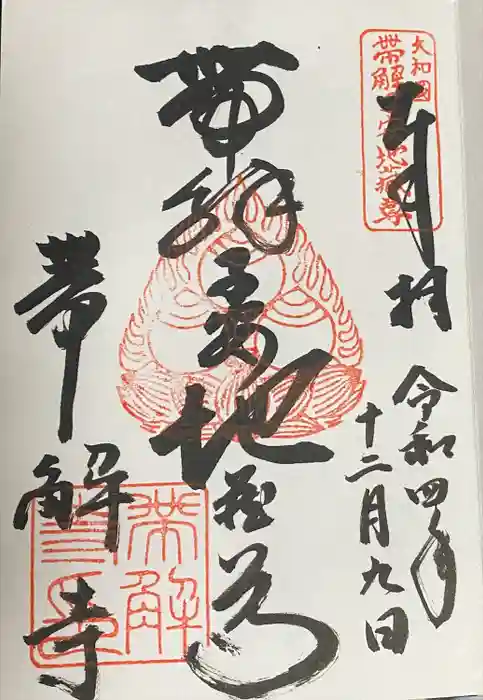 大和國
帯解子安地蔵尊
奉拝
令和四年
十二月九日
帯解子安地蔵尊
帯解寺
帯解
寺印